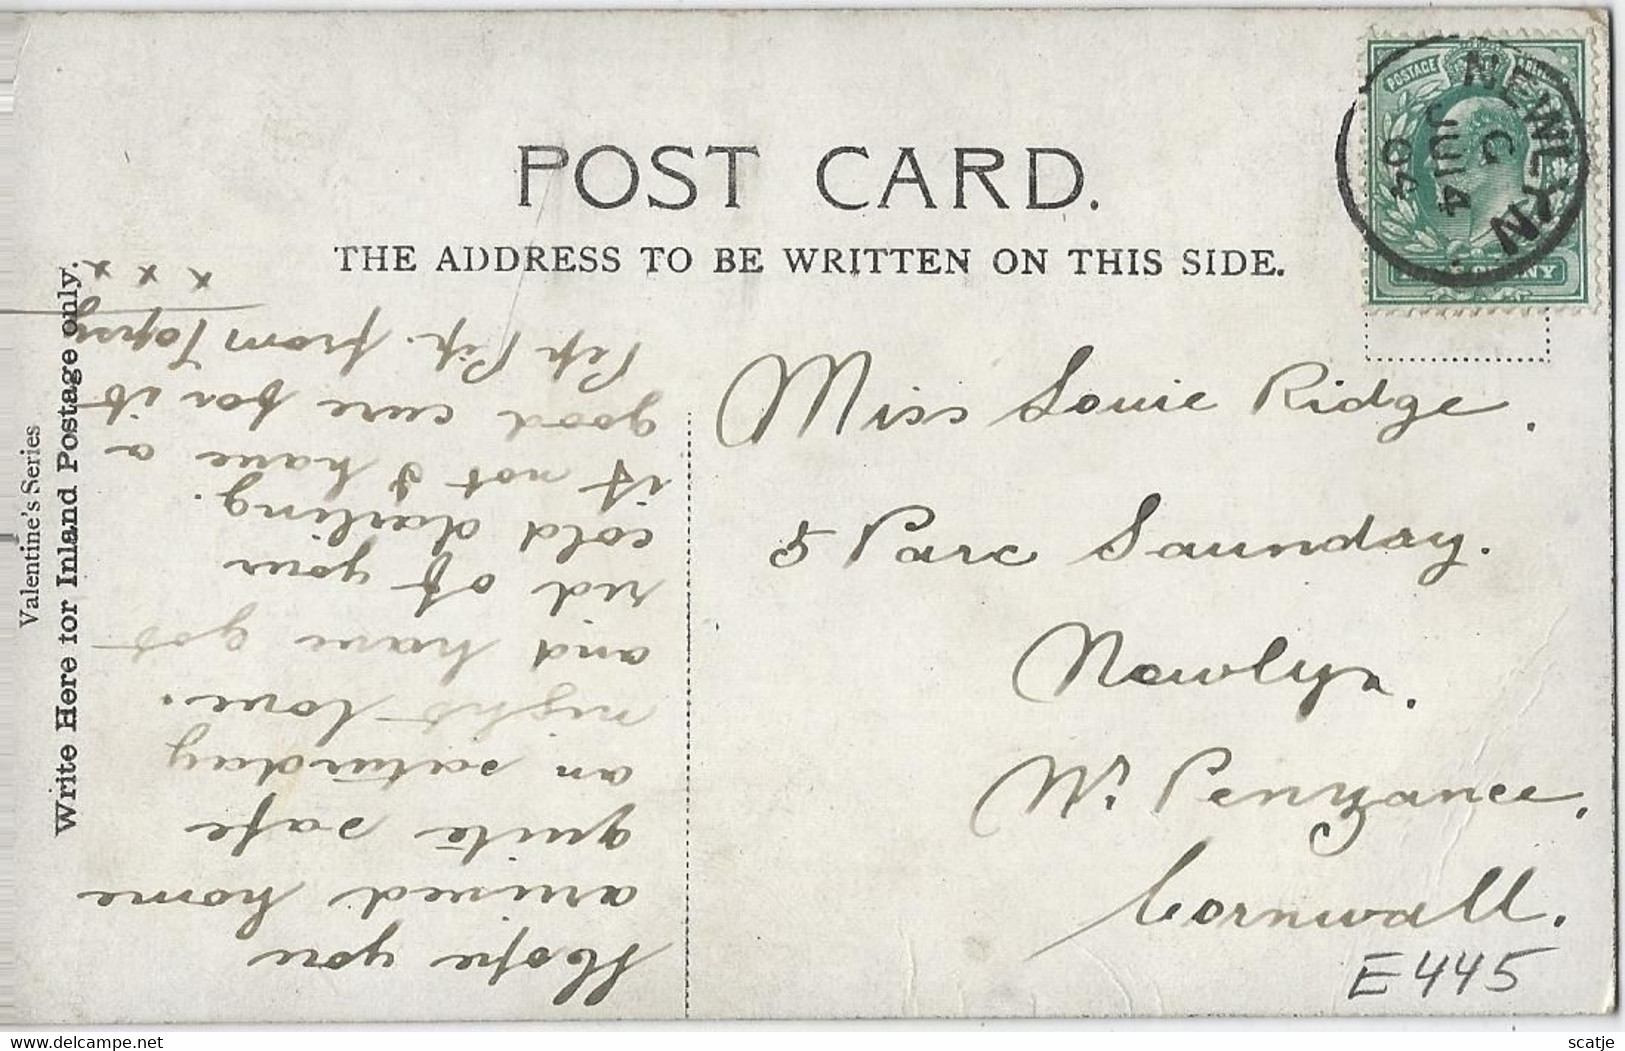 POST CARD.
THE ADDRESS TO BE WRITTEN ON THIS SIDE.
Valentine's Series
Write Here for Inland Postage only.
POSTAGE
NEWLYN
C
JU 14
04
Miss Louie Ridge.
5 Parc Saundry.
Newlyn.
Nr Penzance.
Cornwall.
E445
Hope you
arrived home
quite safe
on saturday
night love.
and have got
rid of your
cold darling.
if not I have a
good cure for it
Pip Pip. from Topsy
x x x x
delcampe.net
scatje